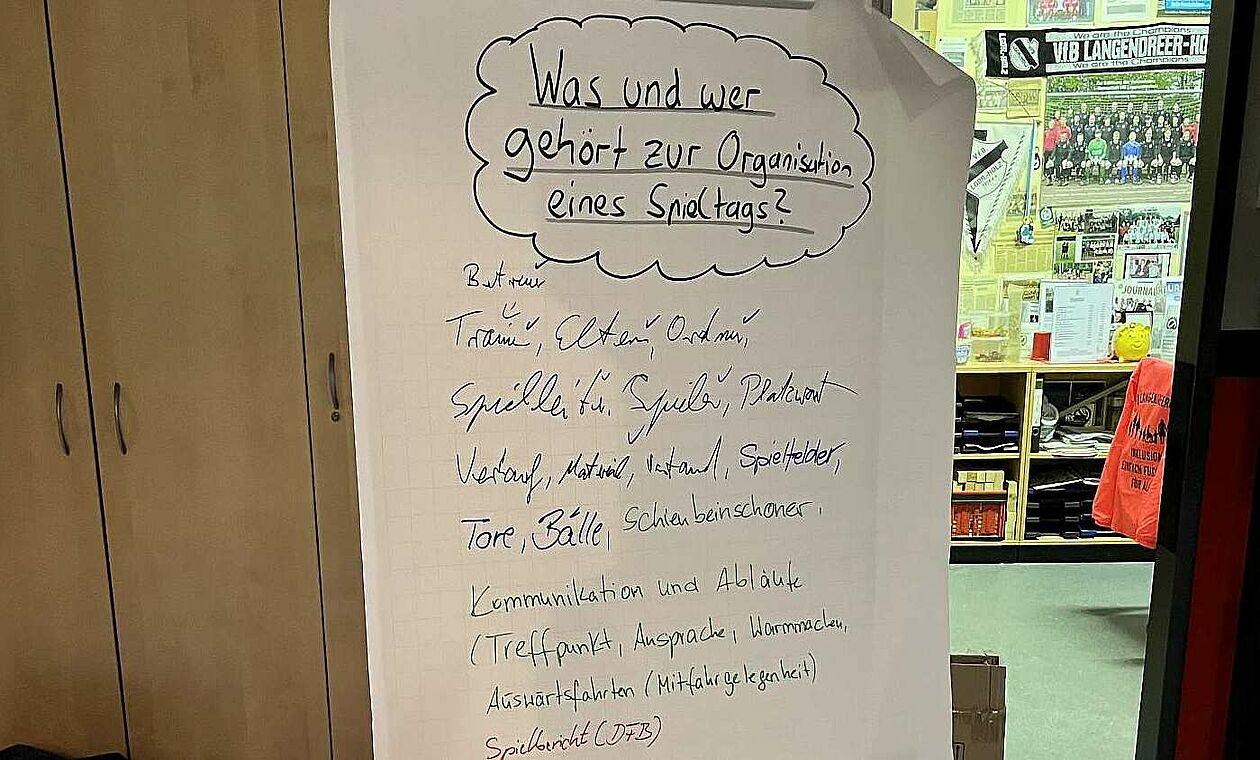 Was und wer
gehört zur Organisation
eines Spieltags?
Betreuer
Trainer, Eltern, Ordner,
Spielleiter, Spieler, Platzwart
Verkauf, Material, Vorstand, Spielfelder,
Tore, Bälle, Schienbeinschoner,
Kommunikation und Abläufe
(Treffpunkt, Ansprache, Warmmachen,
Auswärtsfahrten (Mitfahrgelegenheit)
Spielbericht (DFB)
We are the Champions
VfB LANGENDREER-HO
We are the Champions
JOURNAL
INKLUSION
EINFACH FUSS
FÜR ALL